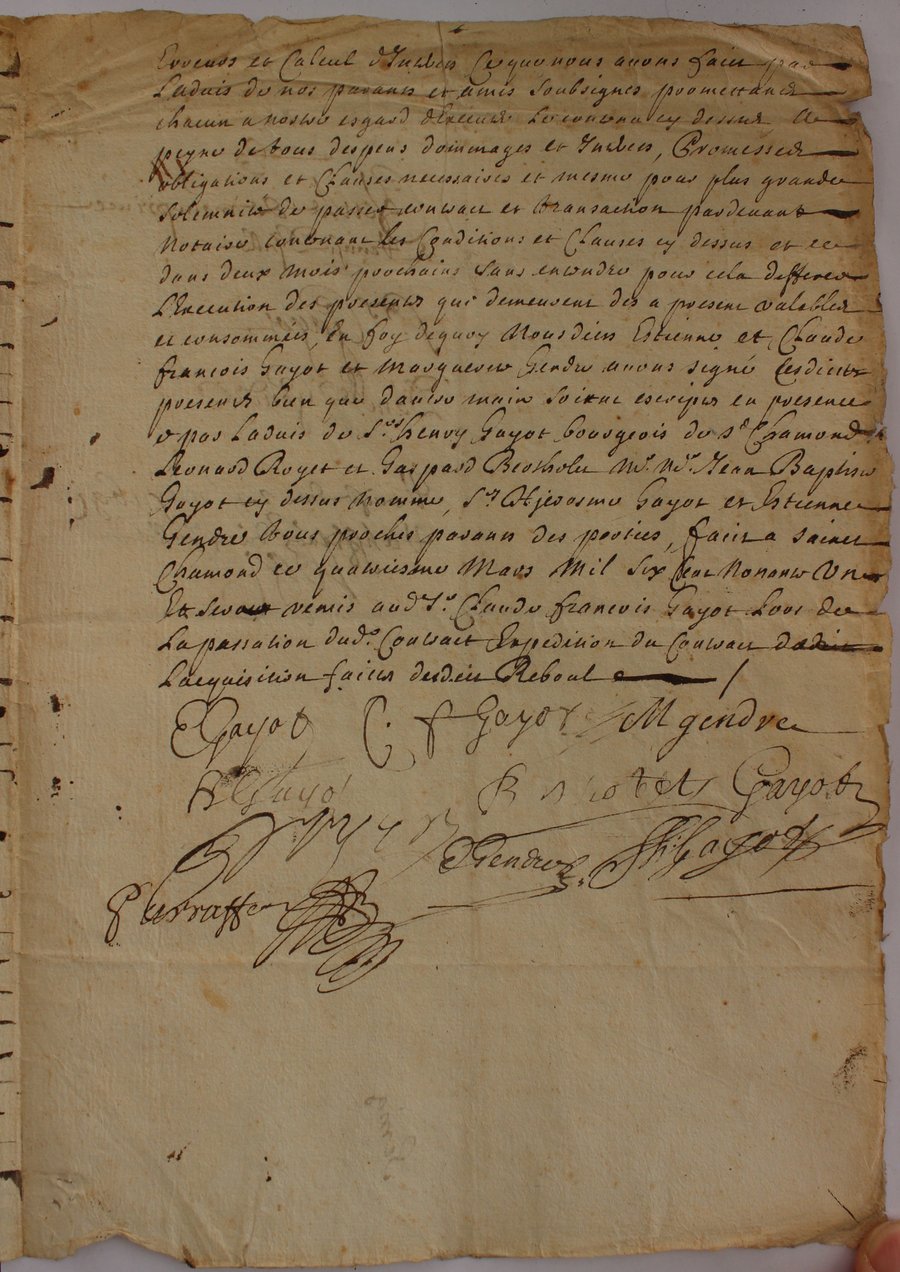 Erreurs et Calcul d'Interes Ce que nous avons fait par
Ladvis de nos parants et amis Soubsignes promettants
chacun a nostre esgard dExecuter Le contenu cy dessus A
peyne de tous despens dommages et Interes, Promesses
obligations et Clauses necessaires et mesme pour plus grande
Solemnite de passer contract et transaction pardevant
Notaire contenant les Conditions et Clauses cy dessus et ce
dans deux mois prochains Sans entendre pour cela differer
LExecution des presentes qui demeurent des a present valables
et consommees, En foy dequoy Nousdicts Estienne et Claude
francois Gayot et Marguerite Gendre avons signé Cesdictes
presentes bien que dautre main Soient escriptes en presence
& par Ladvis de Srs Henry Gayot bourgeois de St Chamond
Leonard Royet et Gaspard Bertholet Me. Me. Jean Baptiste
Gayot cy dessus Nommé, Sr Hierosme Gayot et Estienne
Gendre tous proches parants des parties, fait a Sainct
Chamond ce quatriesme Mars Mil Six Cent Nonante Un
Et Sera remis aud. Sr. Claude francois Gayot Lors de
La passation dud. Contract Expedition du Contract
Lacquisition faicte desdict Reboul
EGayot C. f Gayot M gendre
H Gayot Gayot
EGendre Gayot